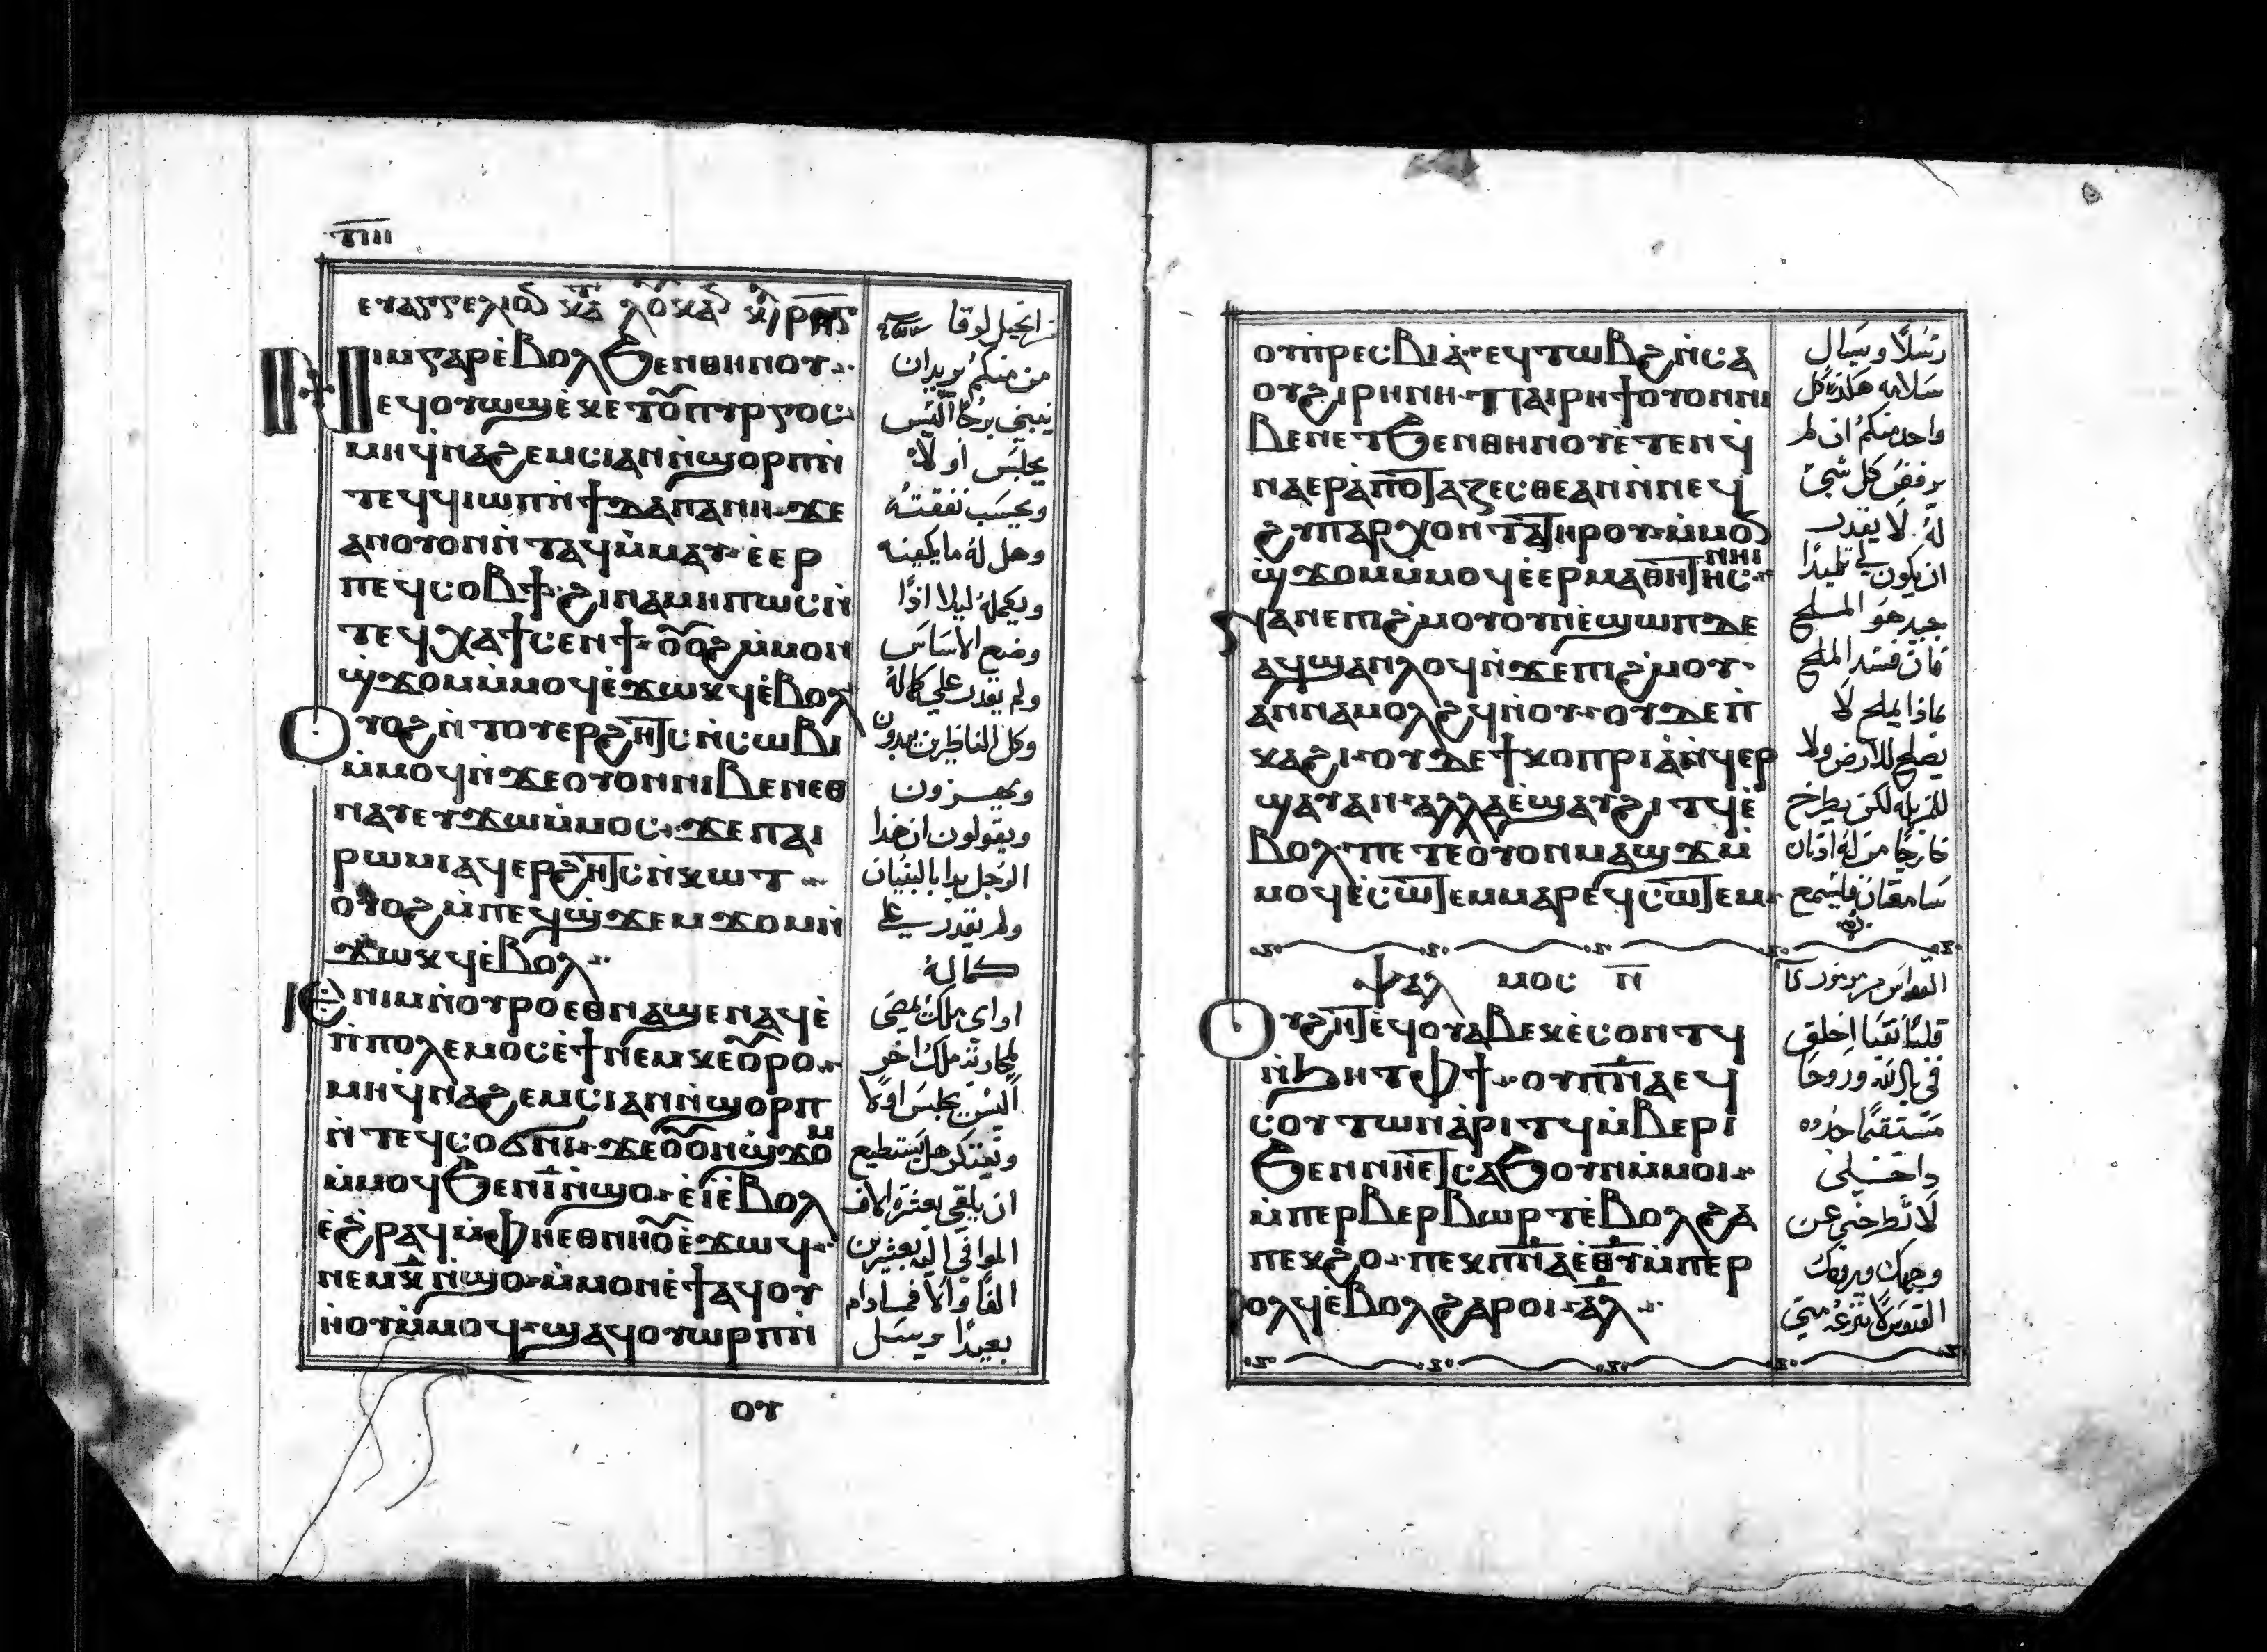 ⲓⲙ ⲅⲁⲣ ⲉ̀ⲃⲟⲗ ϧⲉⲛ ⲑⲏⲛⲟⲩ
ⲉϥⲟⲩⲱϣ ⲉ̀ⲕⲉⲧ ⲟ̅ⲡⲩⲣⲅⲟⲥ
ⲙⲏ ϥ̀ⲛⲁϩⲉⲙⲥⲓ ⲁⲛ ⲛ̀ϣⲟⲣⲡ ⲛ̀
ⲧⲉϥϥⲓⲱⲡ ⲛ̀ϯⲇⲁⲡⲁⲛⲏ ϫⲉ
ⲁⲛ ⲟⲩⲟⲛ ⲛ̀ⲧⲁϥ ⲙ̀ⲙⲁⲩ ⲉ̀ⲉⲣ
ⲡⲉϥⲥⲟⲃϯ ϩⲓⲛⲁ ⲙⲏⲡⲱⲥ ⲛ̀
ⲧⲉϥⲭⲁ ϯⲥⲉⲛϯ ⲟ̅ⲟϩ ⲙ̀ⲙⲟⲛ
ϣ̀ϫⲟⲙ ⲙ̀ⲙⲟϥ ⲉ̀ϫⲱⲕϥ ⲉ̀ⲃⲟⲗ
ⲟⲩⲟϩ ⲛ̀ⲧⲟⲩⲉⲣϩⲏⲧⲥ ⲛ̀ⲥⲱⲃⲓ
ⲙ̀ⲙⲟϥ ⲛ̀ϫⲉ ⲟⲩⲟⲛ ⲛⲓⲃⲉⲛ ⲉⲑ
ⲛⲁⲩ ⲉⲩϫⲱ ⲙ̀ⲙⲟⲥ ϫⲉ ⲡⲁⲓ
ⲣⲱⲙⲓ ⲁϥⲉⲣϩⲏⲧⲥ ⲛ̀ⲕⲱⲧ
ⲟⲩⲟϩ ⲙ̀ⲡⲉϥϣ̀ϫⲉⲙϫⲟⲙ ⲛ̀
ϫⲱⲕϥ ⲉ̀ⲃⲟⲗ
ⲓⲉ ⲛⲓⲙ ⲛ̀ⲟⲩⲣⲟ ⲉⲑⲛⲁϣⲉⲛⲁϥ ⲉ̀
ⲡ̀ⲡⲟⲗⲉⲙⲟⲥ ⲉ̀ϯ ⲛⲉⲙ ⲕⲉⲟ̅ⲣⲟ
ⲙⲏ ϥ̀ⲛⲁϩⲉⲙⲥⲓ ⲁⲛ ⲛ̀ϣⲟⲣⲡ
ⲛ̀ⲧⲉϥⲥⲟϭⲛⲓ ϫⲉ ⲟ̅ⲟⲛ ϣ̀ϫⲟⲙ
ⲙ̀ⲙⲟϥ ϧⲉⲛ ⲓ̅ ⲛ̀ϣⲟ ⲉ̀ⲓ̀ ⲉ̀ⲃⲟⲗ
ⲉ̀ϩ̀ⲣⲁϥ ⲙ̀ⲫⲏ ⲉⲑⲛⲏⲟ̅ ⲉ̀ϫⲱϥ
ⲛⲉⲙ ⲕ̅ ⲛ̀ϣⲟ ⲙ̀ⲙⲟⲛ ⲉ̀ⲧⲁϥⲟⲩ
ⲛ̀ⲟⲩ ⲙ̀ⲙⲟϥ ϣⲁϥⲟⲩⲱⲣⲡ ⲛ̀
ⲟⲩ
من منكم يريدان
يبني برجًا اليس
يجلس اولًا
ويحسب نفقته
وهل له ما يكفيه
ويكمله ليلا اذًا
وضع الاساس
ولم يقدر علي كماله
وكل الناظرين يبدون
ويهــزون
ويقولون ان هذا
الرجل بدا بالبنيان
ولم يقدر علي
كماله
او اي ملك يمضي
لمحاربة ملك اخر
اليس يجلس اولًا
ويفتكر هل يستطيع
ان يلقي بعشرة الاف
الموافي اليه بعشرين
الفًا والا فما دام
بعيدًا يرسل
ⲟⲩⲡⲣⲉⲥⲃⲓⲁ ⲉϥⲧⲱⲃϩ ⲛ̀ⲥⲁ
ⲟⲩϩⲓⲣⲏⲛⲏ ⲡⲁⲓⲣⲏϯ ⲟⲩⲟⲛ ⲛⲓ
ⲃⲉⲛ ⲉⲧϧⲉⲛ ⲑⲏⲛⲟⲩ ⲉ̀ⲧⲉⲛϥ̀
ⲛⲁⲉⲣⲁ̀ⲡⲟⲧⲁⲍⲉⲥⲑⲉ ⲁⲛ ⲛ̀ⲛⲉϥ
ϩⲩⲡⲁⲣⲭⲟⲛⲧⲁ ⲧⲏⲣⲟⲩ ⲙ̀ⲙⲟⲛ
ϣ̀ϫⲟⲙ ⲙ̀ⲙⲟϥ ⲉ̀ⲉⲣⲙⲁⲑⲏⲧⲏⲥ ⲛⲏⲓ
ⲛⲁⲛⲉ ⲡⲓϩ̀ⲙⲟⲩ ⲟⲩⲛ ⲉ̀ϣⲱⲡ ⲇⲉ
ⲁϥϣⲁⲛⲗⲟϥ ⲛ̀ϫⲉ ⲡⲓϩ̀ⲙⲟⲩ
ⲁⲛⲛⲁⲙⲟⲗϩϥ ⲛ̀ⲟⲩ ⲟⲩⲇⲉ ⲡ̀
ⲕⲁϩⲓ ⲟⲩⲇⲉ ϯⲕⲟⲡⲣⲓⲁ̀ ⲛ̀ϥⲉⲣ
ϣⲁⲩ ⲁⲛ ⲁⲗⲗⲁ ⲉ̀ϣⲁⲩϩⲓⲧϥ ⲉ̀
ⲃⲟⲗ ⲡⲉⲧⲉ ⲟ̀ⲩⲟⲛ ⲙⲁϣϫ ⲙ̀
ⲙⲟϥ ⲉ̀ⲥⲱⲧⲉⲙ ⲙⲁⲣⲉϥⲥⲱⲧⲉⲙ
رسلًا ويسال
سلامه هكذا كل
واحد منكم ان لم
يرفض كل شي
له لا يقدر
ان يكون لي تلميذًا
جيد هو الملح
فان فسد الملح
بماذا يملح لا
يصلح للارض ولا
للمزبله لكن يطرح
خارجًا من له اذنان
سامعتان فليسمع
ⲯⲁⲗ ⲙⲟⲥ ⲛ̅
ⲟⲩϩⲏⲧ ⲉ̀ϥⲟⲩⲁⲃ ⲉⲕⲉ̀ⲥⲟⲛⲧϥ
ⲛ̀ϧⲏⲧ ⲫϯ ⲟⲩⲡⲛ̅ⲁ ⲉϥ
ⲥⲟⲩⲧⲱⲛ ⲁ̀ⲣⲓⲧϥ ⲙ̀ⲃⲉⲣⲓ
ϧⲉⲛ ⲛⲏⲉⲧⲥⲁϧⲟⲩⲛ ⲙ̀ⲙⲟⲓ
ⲙ̀ⲡⲉⲣⲃⲉⲣⲃⲱⲣⲧ ⲉ̀ⲃⲟⲗ ϩⲁ
ⲡⲉⲕϩⲟ ⲡⲉⲕⲡⲛ̅ⲁ ⲉ̀ⲑ̅ⲩ ⲙ̀ⲡⲉⲣ
ⲟⲗϥ ⲉ̀ⲃⲟⲗ ϩⲁⲣⲟⲓ ⲁ̅ⲗ
قلبًا نقيًا اخلق
في يا الله وروحًا
مستقيمًا جدده
داخـلي
لا تطرحني عن
وجهك وروحك
القدوس لا تنزعه مني